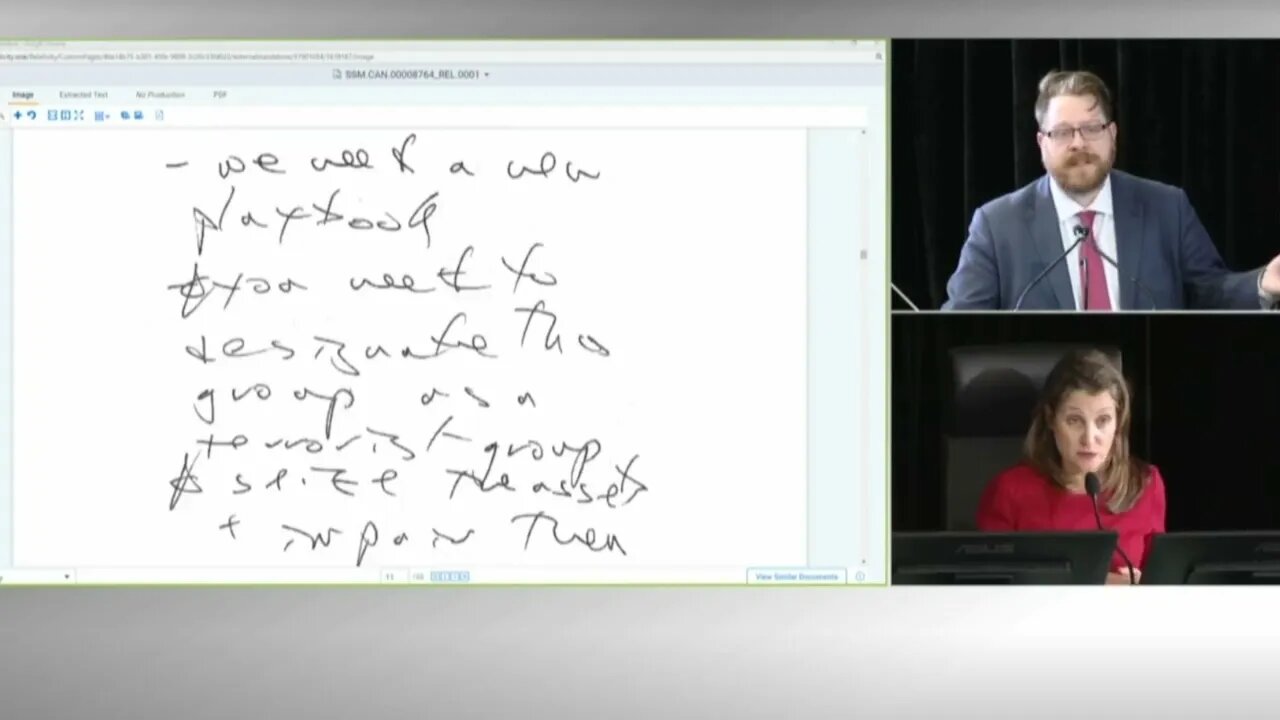 SSM.CAN.00008764_REL.0001
Image Extracted Text No Production PDF
- we need a new
playbook
you need to
designate this
group as a
terrorist group
seize the assets
+ impair them
11
View Similar Documents